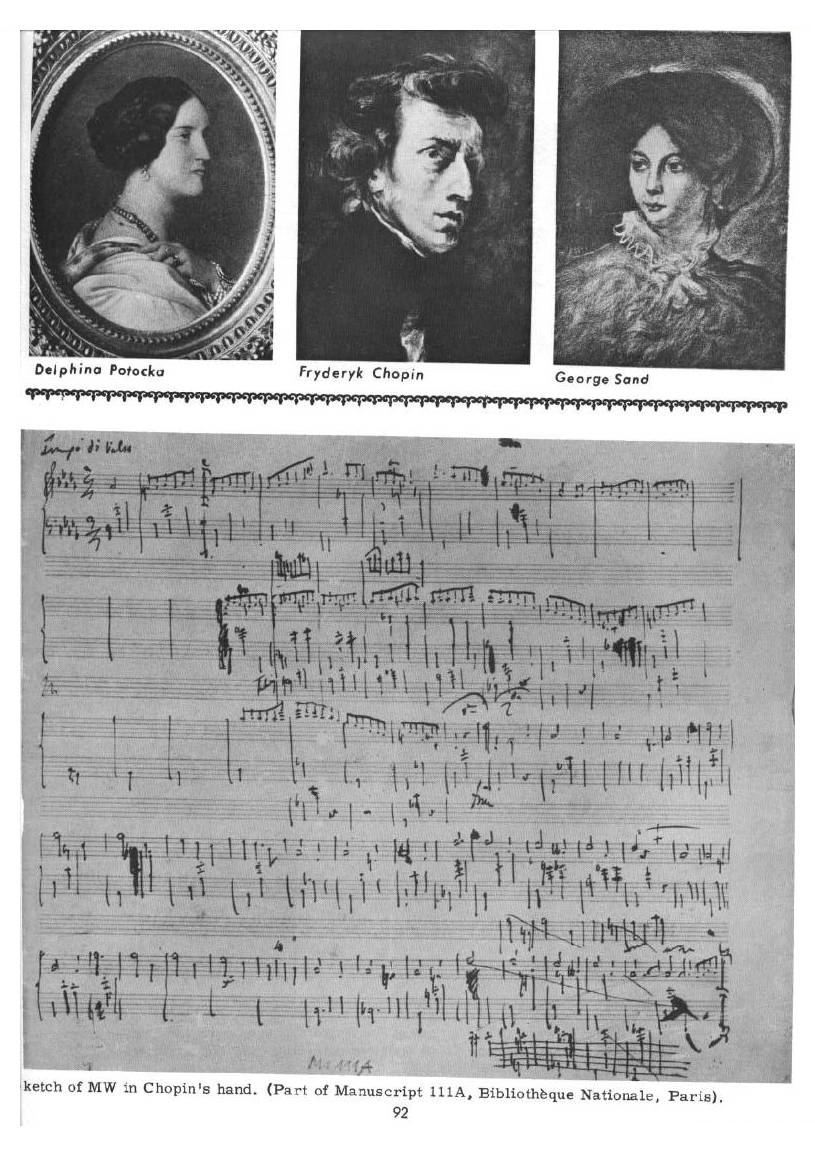 Delphina Potocka
Fryderyk Chopin
George Sand
Tempo di Valse
ketch of MW in Chopin's hand. (Part of Manuscript 111A, Bibliothèque Nationale, Paris).
92